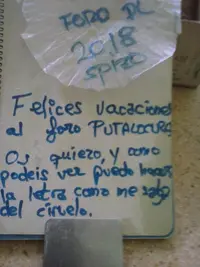 FORO DL
2018
Felices vacaciones
al foro PUTALOCURA
Os quiero, y como
podeis ver puedo hacer
la letra como me salga
del ciruelo.